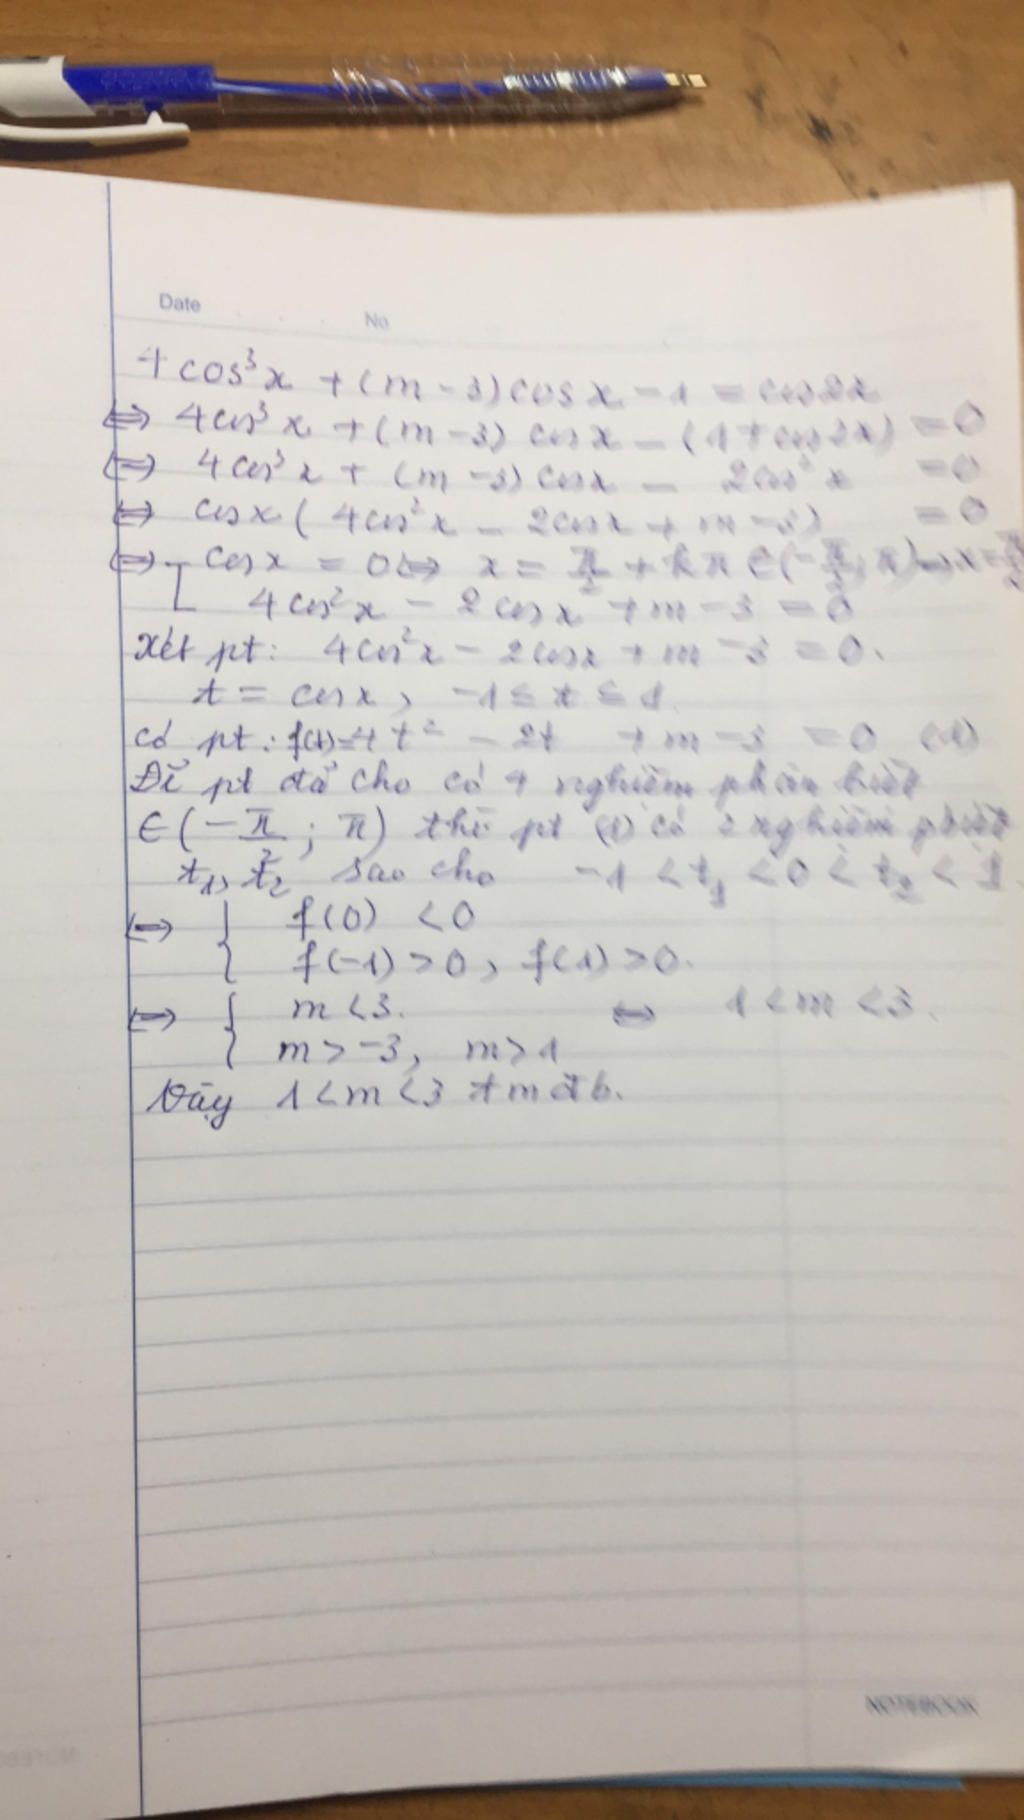 Date
No
4cos³x + (m-3)cosx - 1 = cos2x
⇔ 4cos³x + (m-3) cosx - (1+cos2x) = 0
⇔ 4cos³x + (m-3) cosx - 2cos²x = 0
⇔ cosx ( 4cos²x - 2cosx + m-3) = 0
⇔ [ cosx = 0 ⇔ x = π/2 + kπ ∈ (-π/2; π) ⇔ x = π/2
4cos²x - 2cosx + m - 3 = 0
Xét pt: 4cos²x - 2cosx + m - 3 = 0.
t = cosx, -1 ≤ t ≤ 1.
có pt: f(t)=4t² - 2t + m-3 = 0 (1)
Để pt đã cho có 4 nghiệm phân biệt
∈ (-π/2; π) thì pt (1) có 2 nghiệm
t₁, t₂ sao cho -1 < t₁ < 0 < t₂ < 1.
⇔ { f(0) < 0
f(-1) > 0, f(1) > 0.
⇔ { m < 3. ⇔ 1 < m < 3.
m > -3, m > 1
Vậy 1 < m < 3 tmđb.
NOTEBOOK